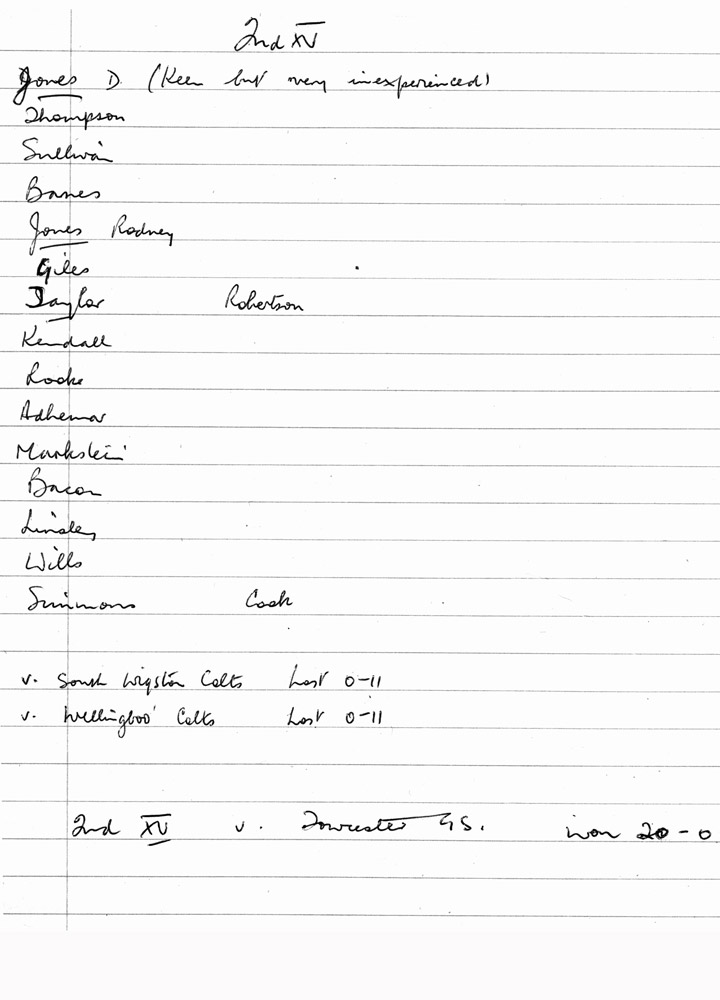 2nd XV
Jones D. (Keen but very inexperienced)
Thompson
Sullivan
Banes
Jones Rodney
Giles
Taylor Robertson
Kendall
Rooke
Adhemar
Markstein
Bacon
Linsley
Wills
Simmons Cook
v. South Wigston Colts Lost 0-11
v. Wellingboro' Colts Lost 0-11
2nd XV v. Towcester GS. won 20-0